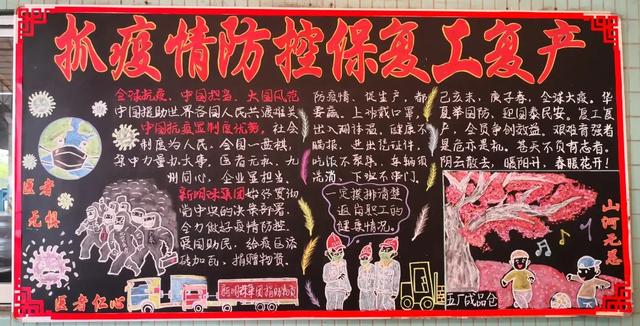 抓疫情防控保复工复产
全球抗疫,中国担当,大国风范
中国援助世界各国人民共渡难关
中国抗疫显制度优势,社会
制度为人民,全国一盘棋,
集中力量办大事,医者无私,九
州同心,企业显担当,
新明珠集团始终贯彻
党中央的决策部署,
全力做好疫情防控,
爱国助民,给疫区添
砖加瓦,捐赠物资。
医者
无惧
医者仁心
新明珠集团捐赠物资
防疫情、促生产,都
要赢。上岗戴口罩,
出入测体温,健康不
瞒报,进出凭证件,
吃饭不聚集,车辆须
洗消,下班不串门,
定摸排清楚
返岗职工的
健康情况。
己亥末,庚子春,全球大疫。华
夏举国防,迎国泰民安。复工复
产,全员争创效益,艰难有强者
是危亦是机。苍天不负有志者。
阴云散去,暖阳开,春暖花开!
山河无恙
五厂成品仓